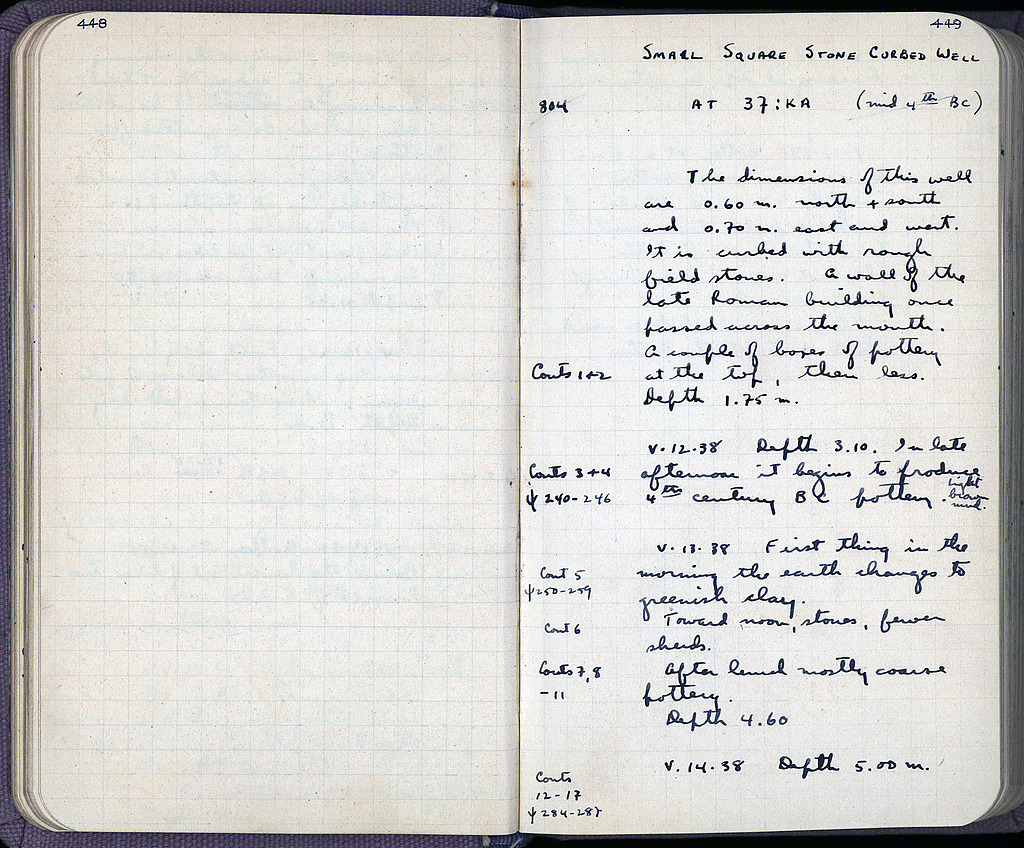 448
449
SMALL SQUARE STONE CURBED WELL
804 AT 37:KA (mid 4th BC)
The dimensions of this well
are 0.60 m. north + south
and 0.70 m. east and west.
It is curbed with rough
field stones. A wall of the
late Roman building once
passed across the mouth.
A couple of boxes of pottery
Conts 1+2 at the top, then less.
Depth 1.75 m.
V.12.38 Depth 3.10. In late
Conts 3+4 afternoon it begins to produce
ψ 240-246 4th century BC pottery. light brown mud.
V.13.38 First thing in the
Cont 5 morning the earth changes to
ψ250-259 greenish clay.
Cont 6 Toward noon, stones, fewer
sherds.
Conts 7,8 After lunch mostly coarse
-11 pottery.
Depth 4.60
V.14.38 Depth 5.00 m.
Conts
12-17
ψ 284-287